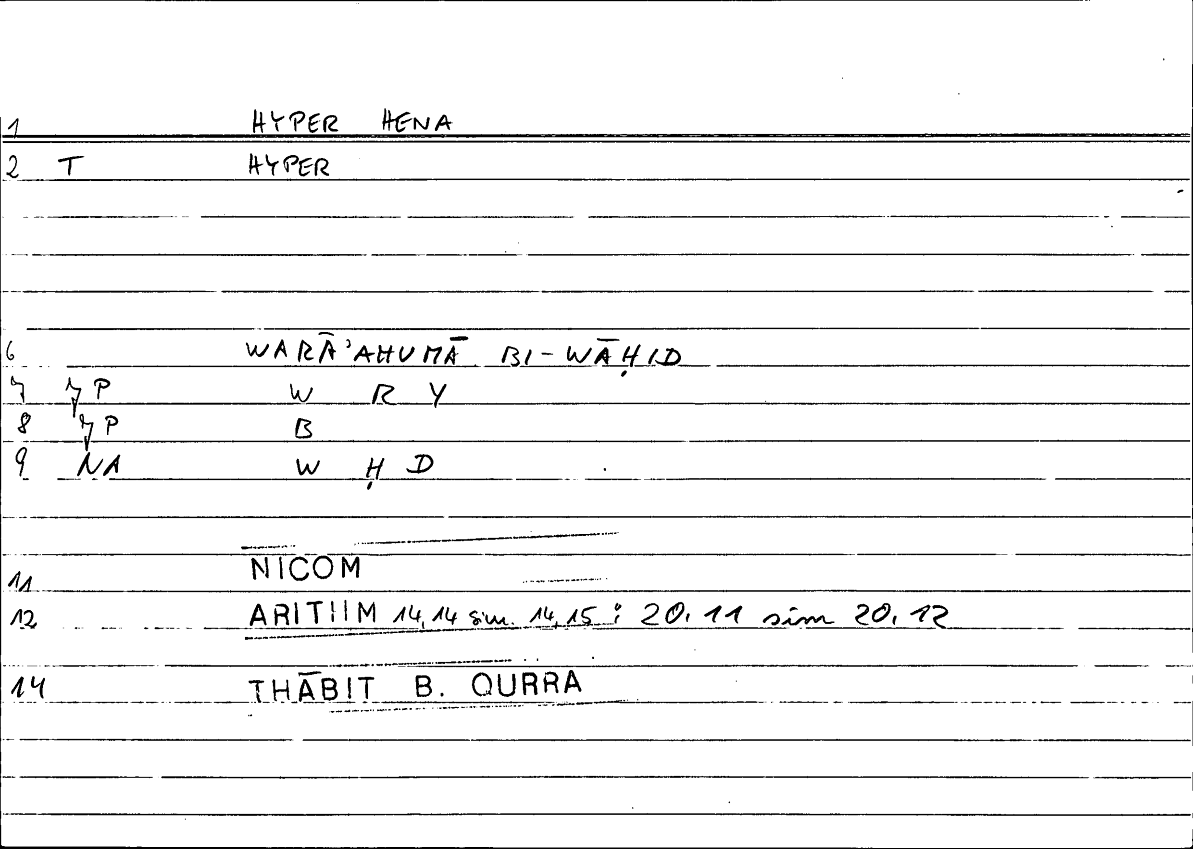 1 HYPER HENA
2 T HYPER
6 WARĀʾAHUMĀ BI-WĀḤID
7 P W R Y
8 P B
9 NA W Ḥ D
11 NICOM
12 ARITHM 14,14 sim. 14,15 : 20,11 sim 20,12
14 THĀBIT B. QURRA